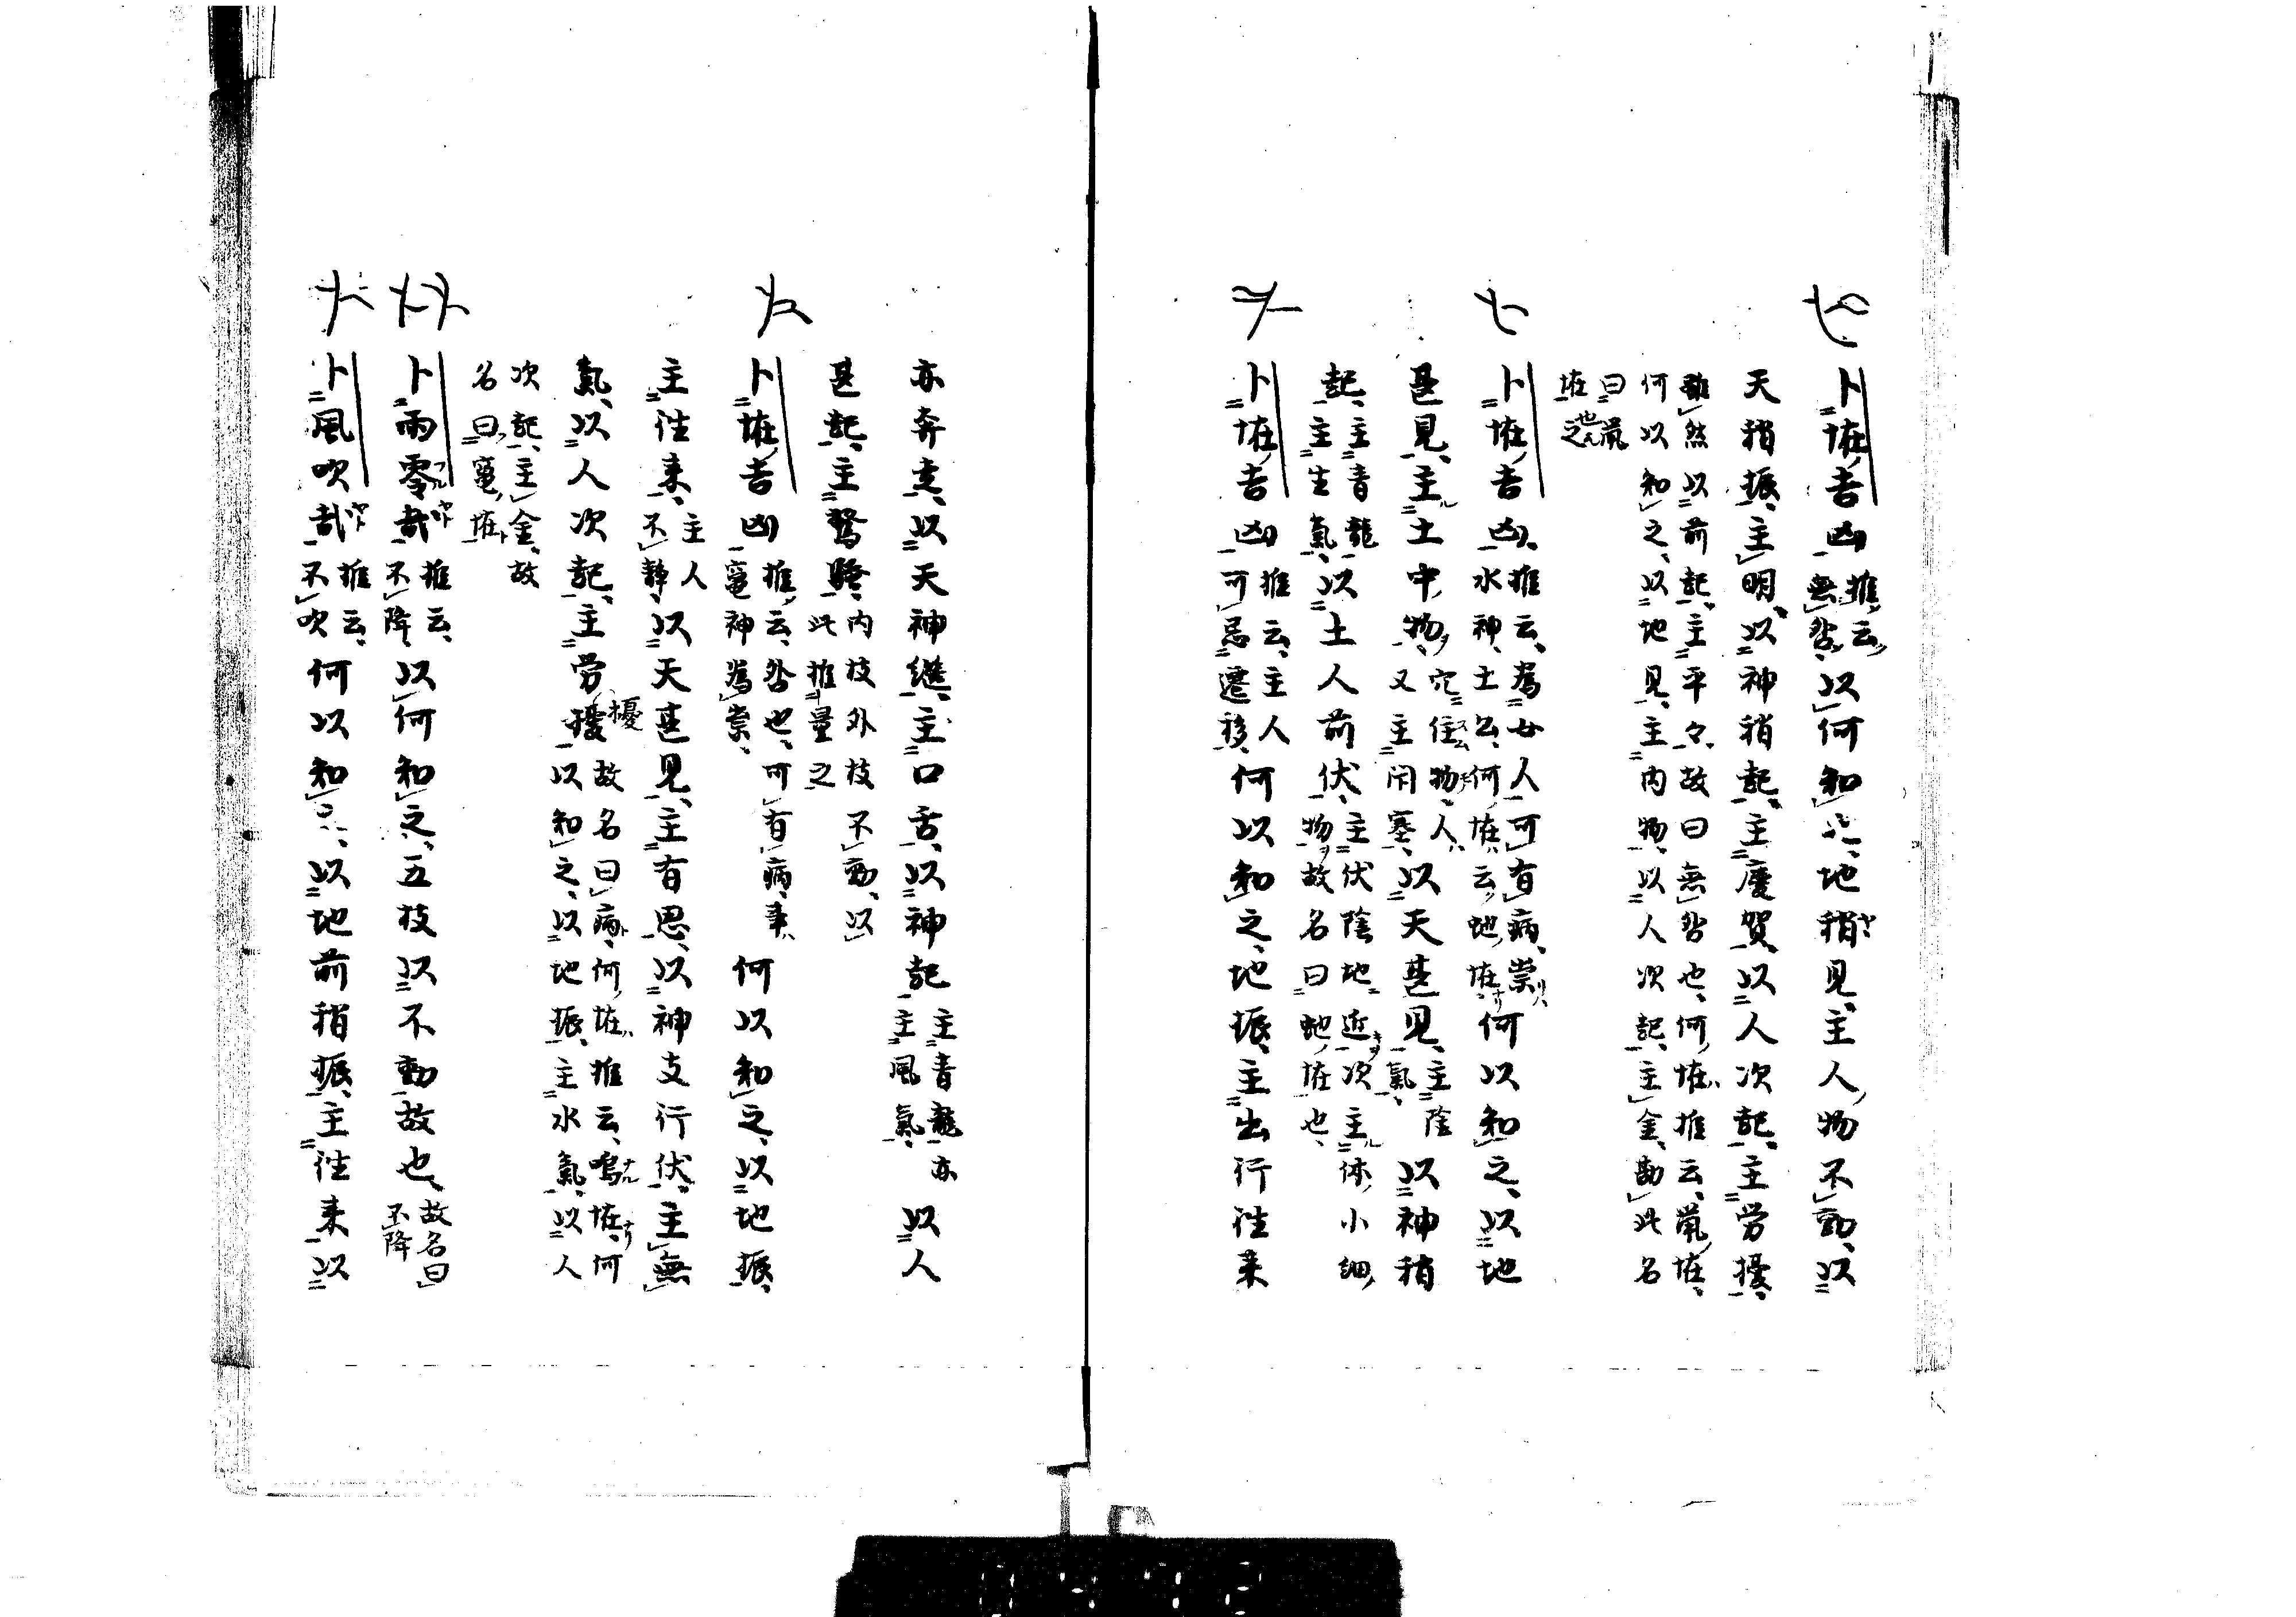 卜恠吉凶 推云、無咎、以何知之、地稍見、主人物不動、以
天稍振、主明、以神稍起、主慶賀、以人次起、主労擾、
雖然以前起、主平々、故曰無咎也、何恠、推云、鼠恠、
何以知之、以地見、主内物、以人次起、主金、勘此名
曰鼠
恠也
卜恠吉凶、推云、為女人可有病、祟水神土公、何恠云、蛇恠、何以知之、以地
甚見、主土中物、穴住物、人又主閇塞、以天甚見、主陰氣、以神稍
起、主青龍主生氣、以土人前伏、主伏陰地近物、次主体小細、故名曰蛇恠也、
卜恠吉凶 推云、主人可忌遷移、何以知之、地振、主出行往来
亦奔走、以天神継、主口舌、以神起 主青龍亦主風氣、以人
甚起、主驚騒、内枝外枝不動、以此推量之
卜恠吉凶 推云、咎也、可有病事、竃神為祟、何以知之、以地振、
主往来、主人不静、以天甚見、主有思、以神支行伏、主無
氣、以人次起、主労擾 故名曰病、何恠、推云、鳴恠、何以知之、以地振、主水氣、以人
次起、主金、故
名曰竃恠
卜雨零哉 推云、不降、以何知之、五枝以不動故也、故名曰不降
卜風吹哉 推云、不吹 何以知之、以地前稍振、主往来以